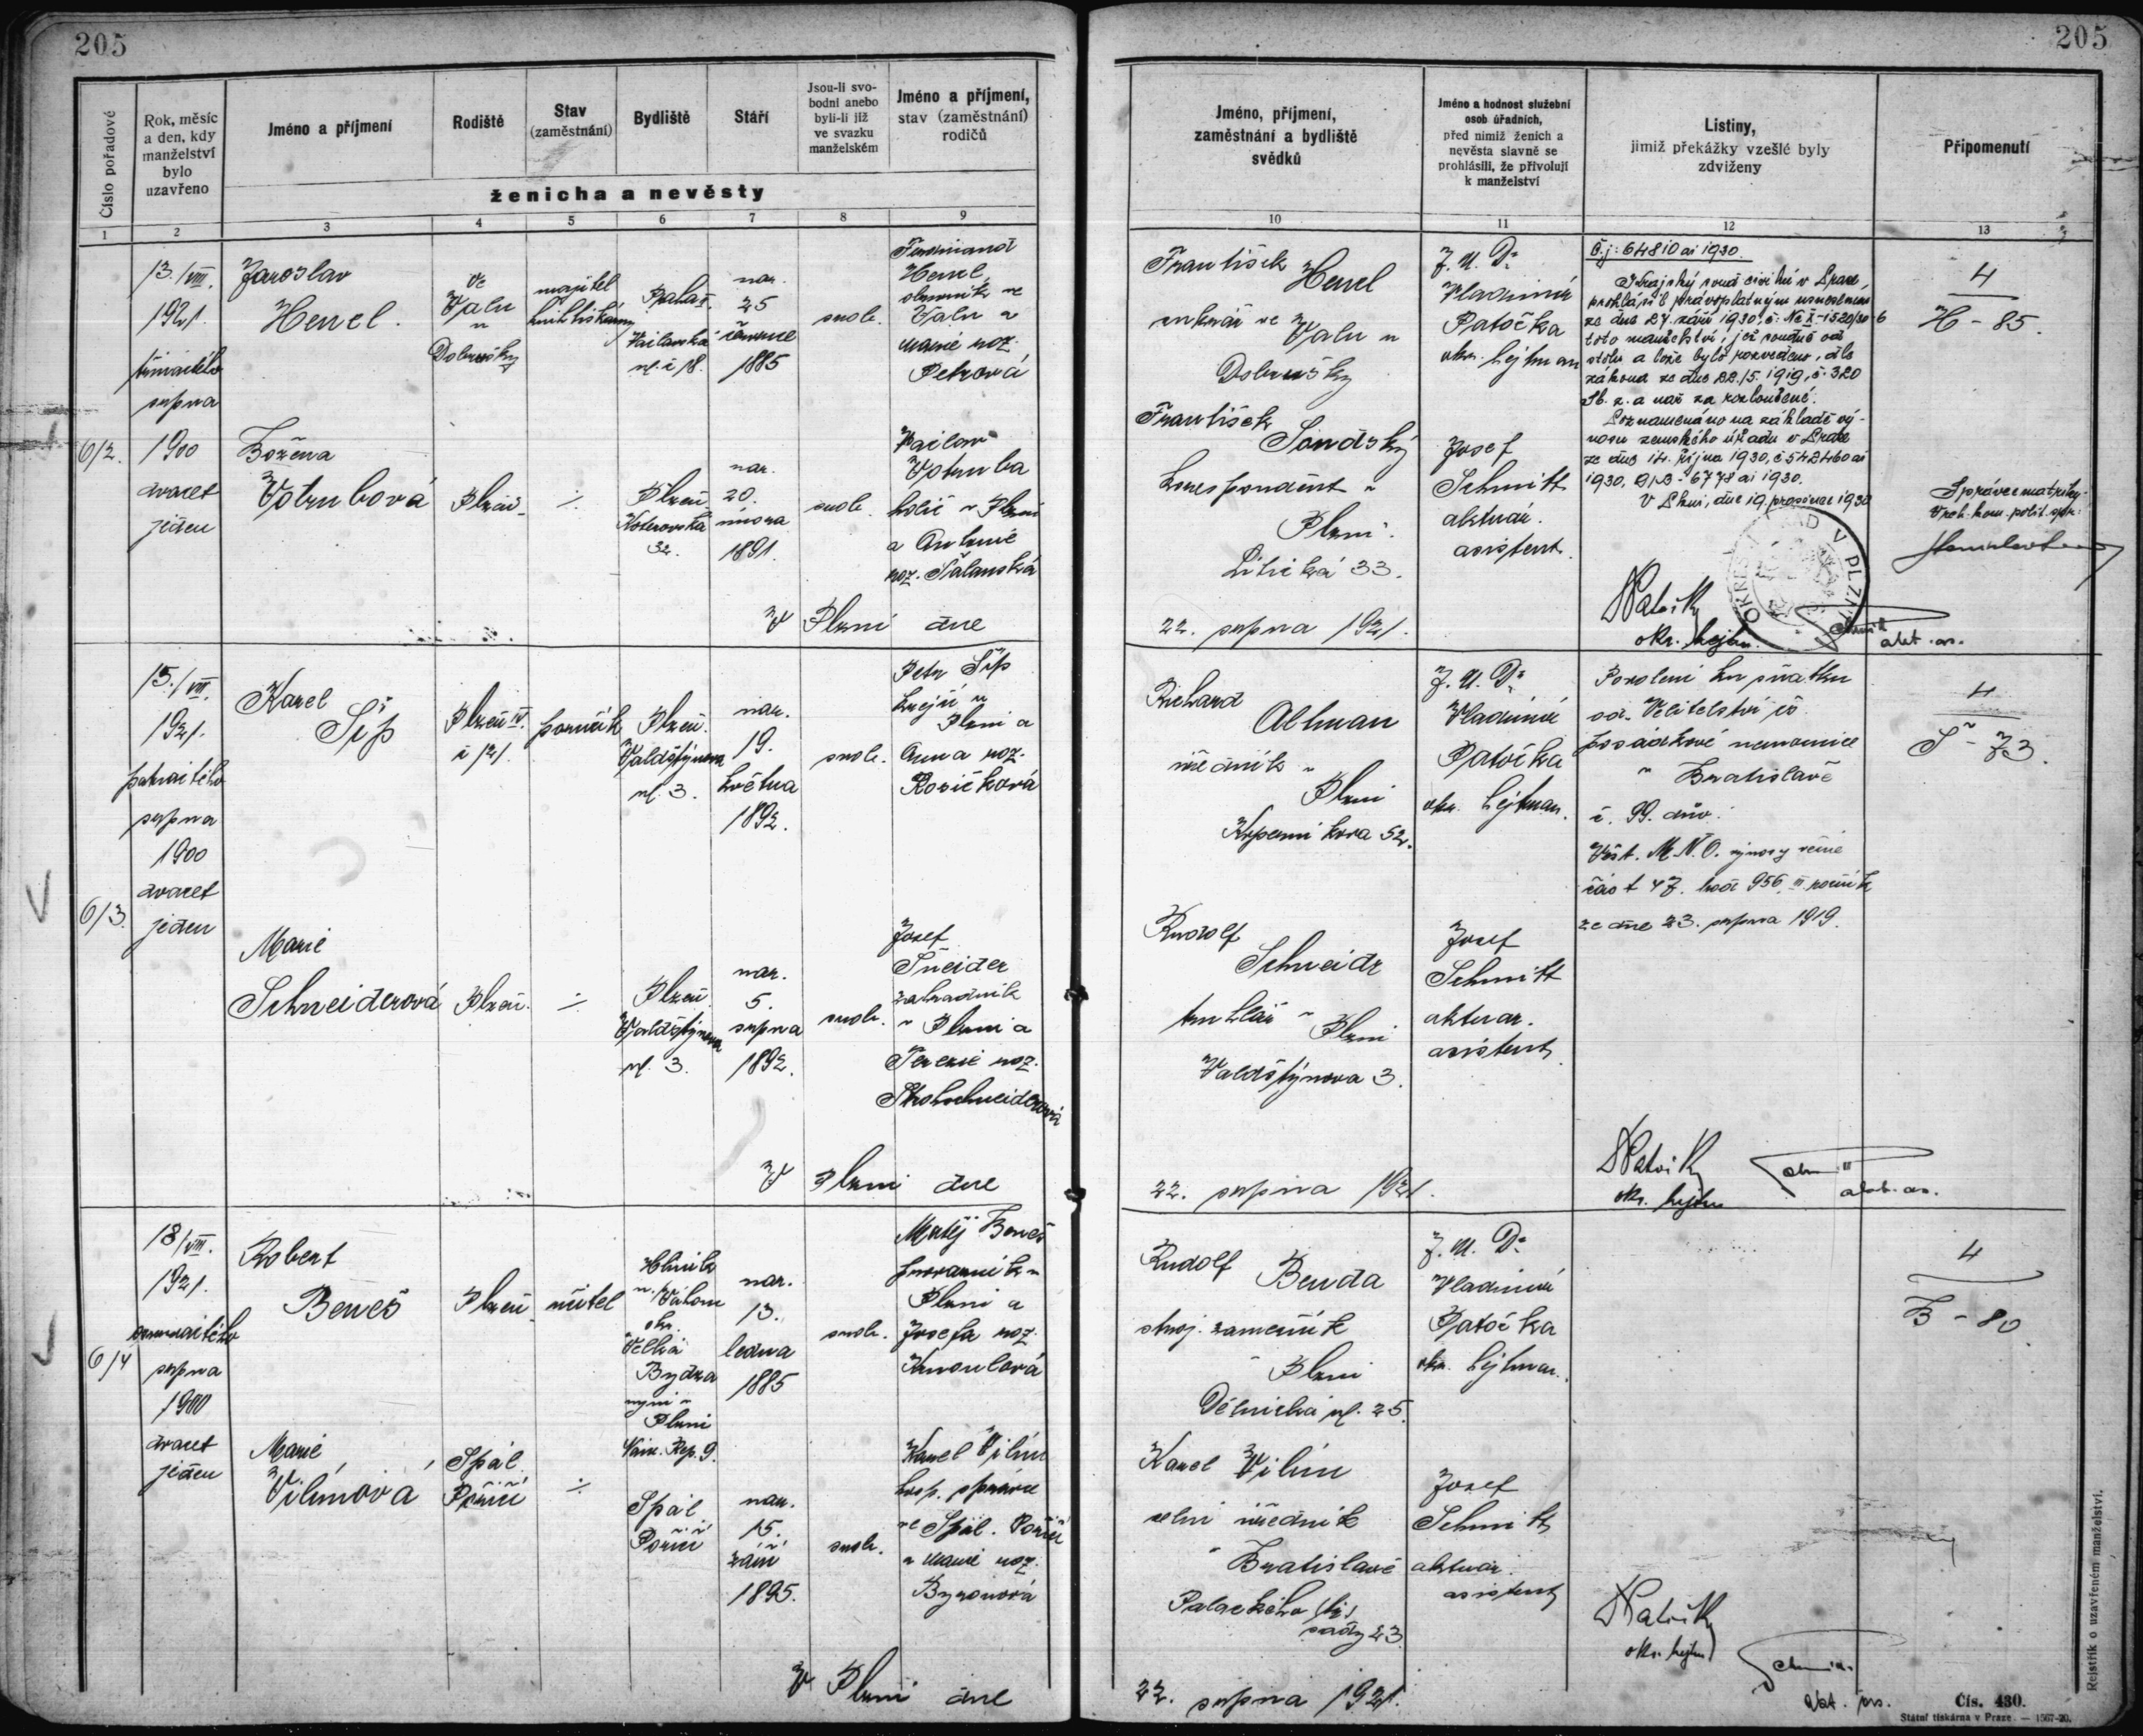 205
205
Číslo pořadové
Rok, měsíc
a den, kdy
manželství
bylo
uzavřeno
Jméno a příjmení
Rodiště
Stav
(zaměstnání)
Bydliště
Stáří
Jsou-li svo-
bodni anebo
byli-li již
ve svazku
manželském
Jméno a příjmení,
stav (zaměstnání)
rodičů
ženicha a nevěsty
Jméno, příjmení,
zaměstnání a bydliště
svědků
Jméno a hodnost služební
osob úřadních,
před nimiž ženich a
nevěsta slavně se
prohlásili, že přivolují
k manželství
Listiny,
jimiž překážky vzešlé byly
zdviženy
Připomenutí
1 2 3 4 5 6 7 8 9
10 11 12 13
612.
13./VIII.
1921.
třináctého
srpna
1900
dvacet
jeden
Jaroslav
Hencl.
ve
Valu
u
Dobrušky
majitel
knihtiskárny
Praha
č. 18.
nar.
25
července
1885
svob.
Ferdinand
Hencl
ve
Valu a
Marie roz.
Petrová
Božena
Votrubová
Plzeň
÷
Plzeň
Koterovská
32.
nar.
20.
února
1891.
svob.
Václav
Votruba
holič v Plzni
a Antonie
roz. Šalanská
V Plzni dne
František
Hencl
ve
Valu u
Dobrušky
František
Korespondent v
Plzni.
Litická 33.
22. srpna 1921.
J. U. Dr
Vladimír
Patočka
okr. hejtman
Josef
Schmitt
aktuár.
asistent.
Č.j: 64810 ai 1930.
Krajský soud civilní v Praze,
prohlásil právoplatným usnesením
ze dne 27. září 1930, č: Nc X-1520/30-6
toto manželství, jež soudně od
stolu a lože bylo rozvedeno, dle
zákona ze dne 22./5. 1919, č. 320
Sb. z. a nař. za rozloučené.
Poznamenáno na základě vý-
nosu zemského úřadu v Praze
ze dne 14. října 1930, č 542460 ai
1930,
V Plzni, dne 19. prosince 1930
4
H - 85.
Správce matriky:
Vrch. kom. polit. spr.:
Patočka
okr. hejtm.
Schmitt
akt. as.
613.
15./VIII.
1921.
patnáctého
srpna
1900
dvacet
jeden
Karel
Šíp
Plzeň IV.
č 121.
poručík
Plzeň
Valdštýnova
ul. 3.
nar.
19.
května
1892.
svob.
Petr Šíp
krejčí v
Plzni a
Anna roz.
Rosičková
Marie
Schneiderová
Plzeň.
÷
Plzeň
Valdštýnova
ul. 3.
nar.
5.
srpna
1892.
svob.
Josef
Šneider
zahradník
v Plzni a
Terezie roz.
V Plzni dne
Richard
Altman
úředník v
Plzni
Koperníkova 52.
Rudolf
Schneidr
truhlář v
Plzni
Valdštýnova 3.
22. srpna 1921.
J. U. Dr
Vladimír
Patočka
okr. hejtman.
Josef
Schmitt
aktuar.
asistent
Povolení ku sňatku
od. Velitelství čs.
posádkové nemocnice
v Bratislavě
č. 99. dův.
Věst. M. N. O. výnosy věcné
část 47. bod 956. II ročník
ze dne 23. srpna 1919.
4
Š - 73.
Patočka
okr. hejtm
Schmitt
akt. as.
614
18/VIII.
1921.
osmnáctého
srpna
1900
dvacet
jeden
Robert
Beneš
Plzeň
učitel
Hliník
n./Váhom
okr.
Velká
Bytča
nyní v
Plzni
Nám. Rep. 9.
nar.
13.
ledna
1885
svob.
Matěj Beneš
v
Plzni a
Josefa roz.
Marie
Vilímová
Spál.
Poříčí
÷
Spál.
Poříčí
nar.
15.
září
1895.
svob.
Karel Vilím
hosp. správce
ve Spál. Poříčí
a Marie roz.
V Plzni dne
Rudolf
Benda
stroj. zámečník
v Plzni
Dělnická ul. 25.
Karel Vilím
celní úředník
v Bratislavě
Palackého
sady 23
22. srpna 1921.
J. U. Dr
Vladimír
Patočka
okr. hejtman.
Josef
Schmitt
aktuár.
asistent
4
B - 80
Patočka
okr. hejtm
Schmitt
akt. as.
Rejstřík o uzavřeném manželství.
Čís. 430.
Státní tiskárna v Praze. — 1567-20.